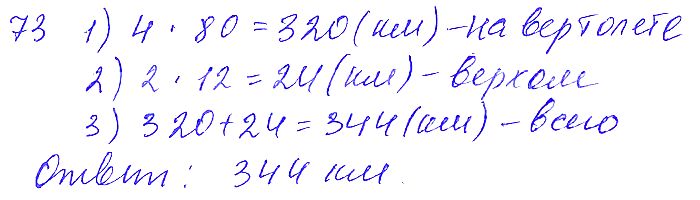 73 1) 4 · 80 = 320 (км) – на вертолете
2) 2 · 12 = 24 (км) – верхом
3) 320 + 24 = 344 (км) – всего
Ответ: 344 км.